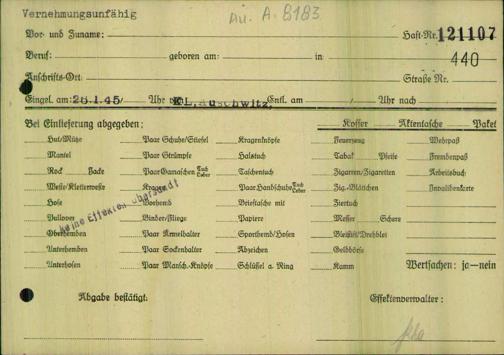 Vernehmungsunfähig
Au. A. 8183
Vor- und Zuname: Haft-Nr. 121107
Beruf: geboren am: in 440
Anschrifts-Ort: Straße Nr.
Eingel. am: 26.1.45 / Uhr KL. Auschwitz, Entl. am / Uhr nach
Bei Einlieferung abgegeben: Koffer Aktentasche Paket
Hut/Mütze Paar Schuhe/Stiefel Kragenknöpfe Feuerzeug Wehrpaß
Mantel Paar Strümpfe Halstuch Tabak Pfeife Fremdenpaß
Rock Jacke Paar Gamaschen Tuch Leder Taschentuch Zigarren/Zigaretten Arbeitsbuch
Weste/Kletterweste Kragen Paar Handschuhe Tuch Leder Zig.-Blättchen Invalidenkarte
Hose Vorhemd Brieftasche mit Ziertuch
Pullover Binder/Fliege Papiere Messer Schere
Oberhemden Paar Ärmelhalter Sporthemd/Hosen Bleistift/Drehblei
Unterhemden Paar Sockenhalter Abzeichen Geldbörse
Unterhosen Paar Mansch.-Knöpfe Schlüssel a. Ring Kamm Wertsachen: ja—nein
Keine Effekten übersandt
Abgabe bestätigt: Effektenverwalter: